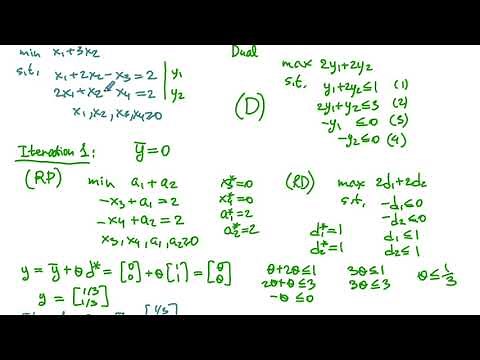 min x₁+3x₂
s.t. x₁+2x₂-x₃=2 | y₁
2x₁+x₂-x₄=2 | y₂
x₁,x₂,x₃,x₄≥0
Dual
(D)
max 2y₁+2y₂
s.t. y₁+2y₂≤1 (1)
2y₁+y₂≤3 (2)
-y₁ ≤0 (3)
-y₂≤0 (4)
Iteration 1: ȳ=0
(RP) min a₁+a₂
-x₃+a₁=2
-x₄+a₂=2
x₃,x₄,a₁,a₂≥0
x₃*=0
x₄*=0
a₁*=2
a₂*=2
(RD) max 2d₁+2d₂
s.t. -d₁≤0
-d₂≤0
d₁≤1
d₂≤1
d₁*=1
d₂*=1
y=ȳ+θd*=[0 0]+θ[1 1]=[θ θ]
θ+2θ≤1 3θ≤1 θ≤1/3
2θ+θ≤3 3θ≤3
-θ≤0
y=[1/3 1/3]